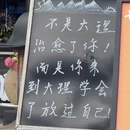 不是大理
治愈了你！
而是你来
到大理学会
了放过自己！